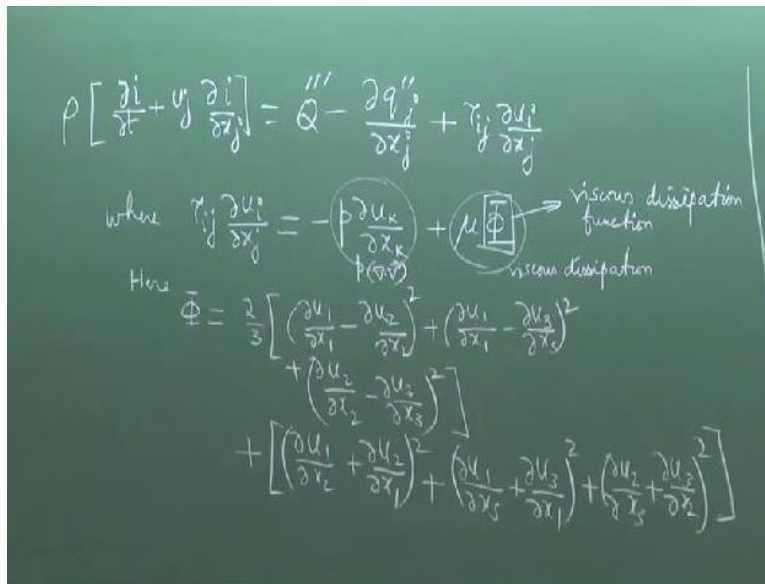 ρ [ ∂i/∂t + υj ∂i/∂xj ] = Q̇''' − ∂q''j/∂xj + τij ∂ui/∂xj
where τij ∂ui/∂xj = − p ∂uk/∂xk + μ Φ → viscous dissipation function
p(∇·v⃗) viscous dissipation
Here
Φ = 2/3 [ (∂u1/∂x1 − ∂u2/∂x2)² + (∂u1/∂x1 − ∂u3/∂x3)²
+ (∂u2/∂x2 − ∂u3/∂x3)² ]
+ [ (∂u1/∂x2 + ∂u2/∂x1)² + (∂u1/∂x3 + ∂u3/∂x1)² + (∂u2/∂x3 + ∂u3/∂x2)² ]